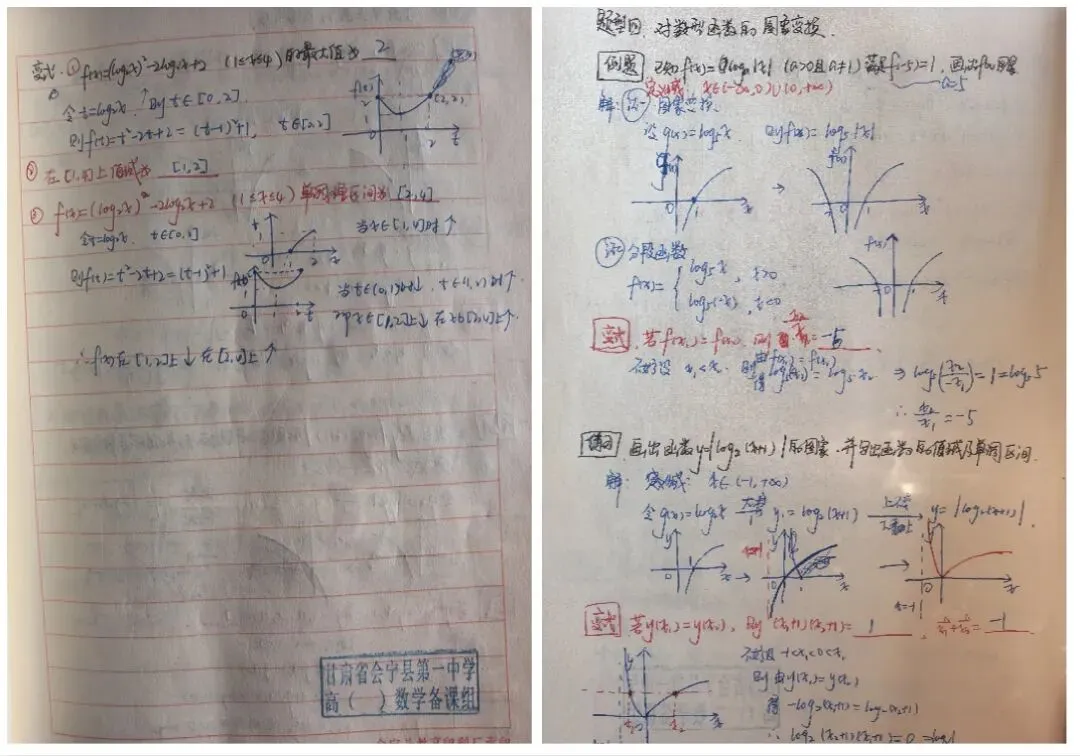 变式.① f(x)=(log₂x)²-2log₂x+2 (1≤x≤4)的最大值为 2
令t=log₂x, 则t∈[0,2].
则f(t)=t²-2t+2=(t-1)²+1, t∈[0,2]
② 在[1,4]上值域为 [1,2]
③ f(x)=(log₂x)²-2log₂x+2 (1≤x≤4) 单调增区间为[2,4]
令t=log₂x. t∈[0,2]
当x∈[1,4]时↑
则f(t)=t²-2t+2=(t-1)²+1
当t∈(0,1)时↓, t∈(1,2)时↑.
即x∈[1,2]上↓在x∈[2,4]上↑.
∴f(x)在[1,2]上↓在[2,4]上↑
甘肃省会宁县第一中学
高( )数学备课组
题型四 对数型函数的图象变换.
例题 已知f(x)=log|x| (a>0且a≠1) 若f(-5)=1, 画出f(x)图象
a=5
定义域 x∈(-∞,0)∪(0,+∞)
解: 法一 图象变换.
令g(x)=log₅x 则f(x)=log₅|x|.
法二 分段函数
f(x)= { log₅x, x>0
log₅(-x), x<0
变式. 若f(x₁)=f(x₂), 则 = -5
不妨设 x₁<x₂. 则 由f(x₁)=f(x₂)
得 log₅x₂ ⇒ log₅(x₂/-x₁)=1=log₅5
∴ x₂/x₁=-5
练习 画出函数y=|log₂(x+1)|的图象.并写出函数的值域及单调区间.
解: 定义域: x∈(-1,+∞)
令g(x)=log₂x → y₁=log₂(x+1) → y=|log₂(x+1)|.
x=-1
变式 若y(x₁)=y(x₂), 则 (x₁+1)(x₂+1)= 1 , 1/x₁+1/x₂= -1
不妨设 -1<x₁<0<x₂
则 由y(x₁)=y(x₂)
得 -log₂(x₁+1)=log₂(x₂+1)
∴ log₂(x₁+1)(x₂+1)=0=log₂1